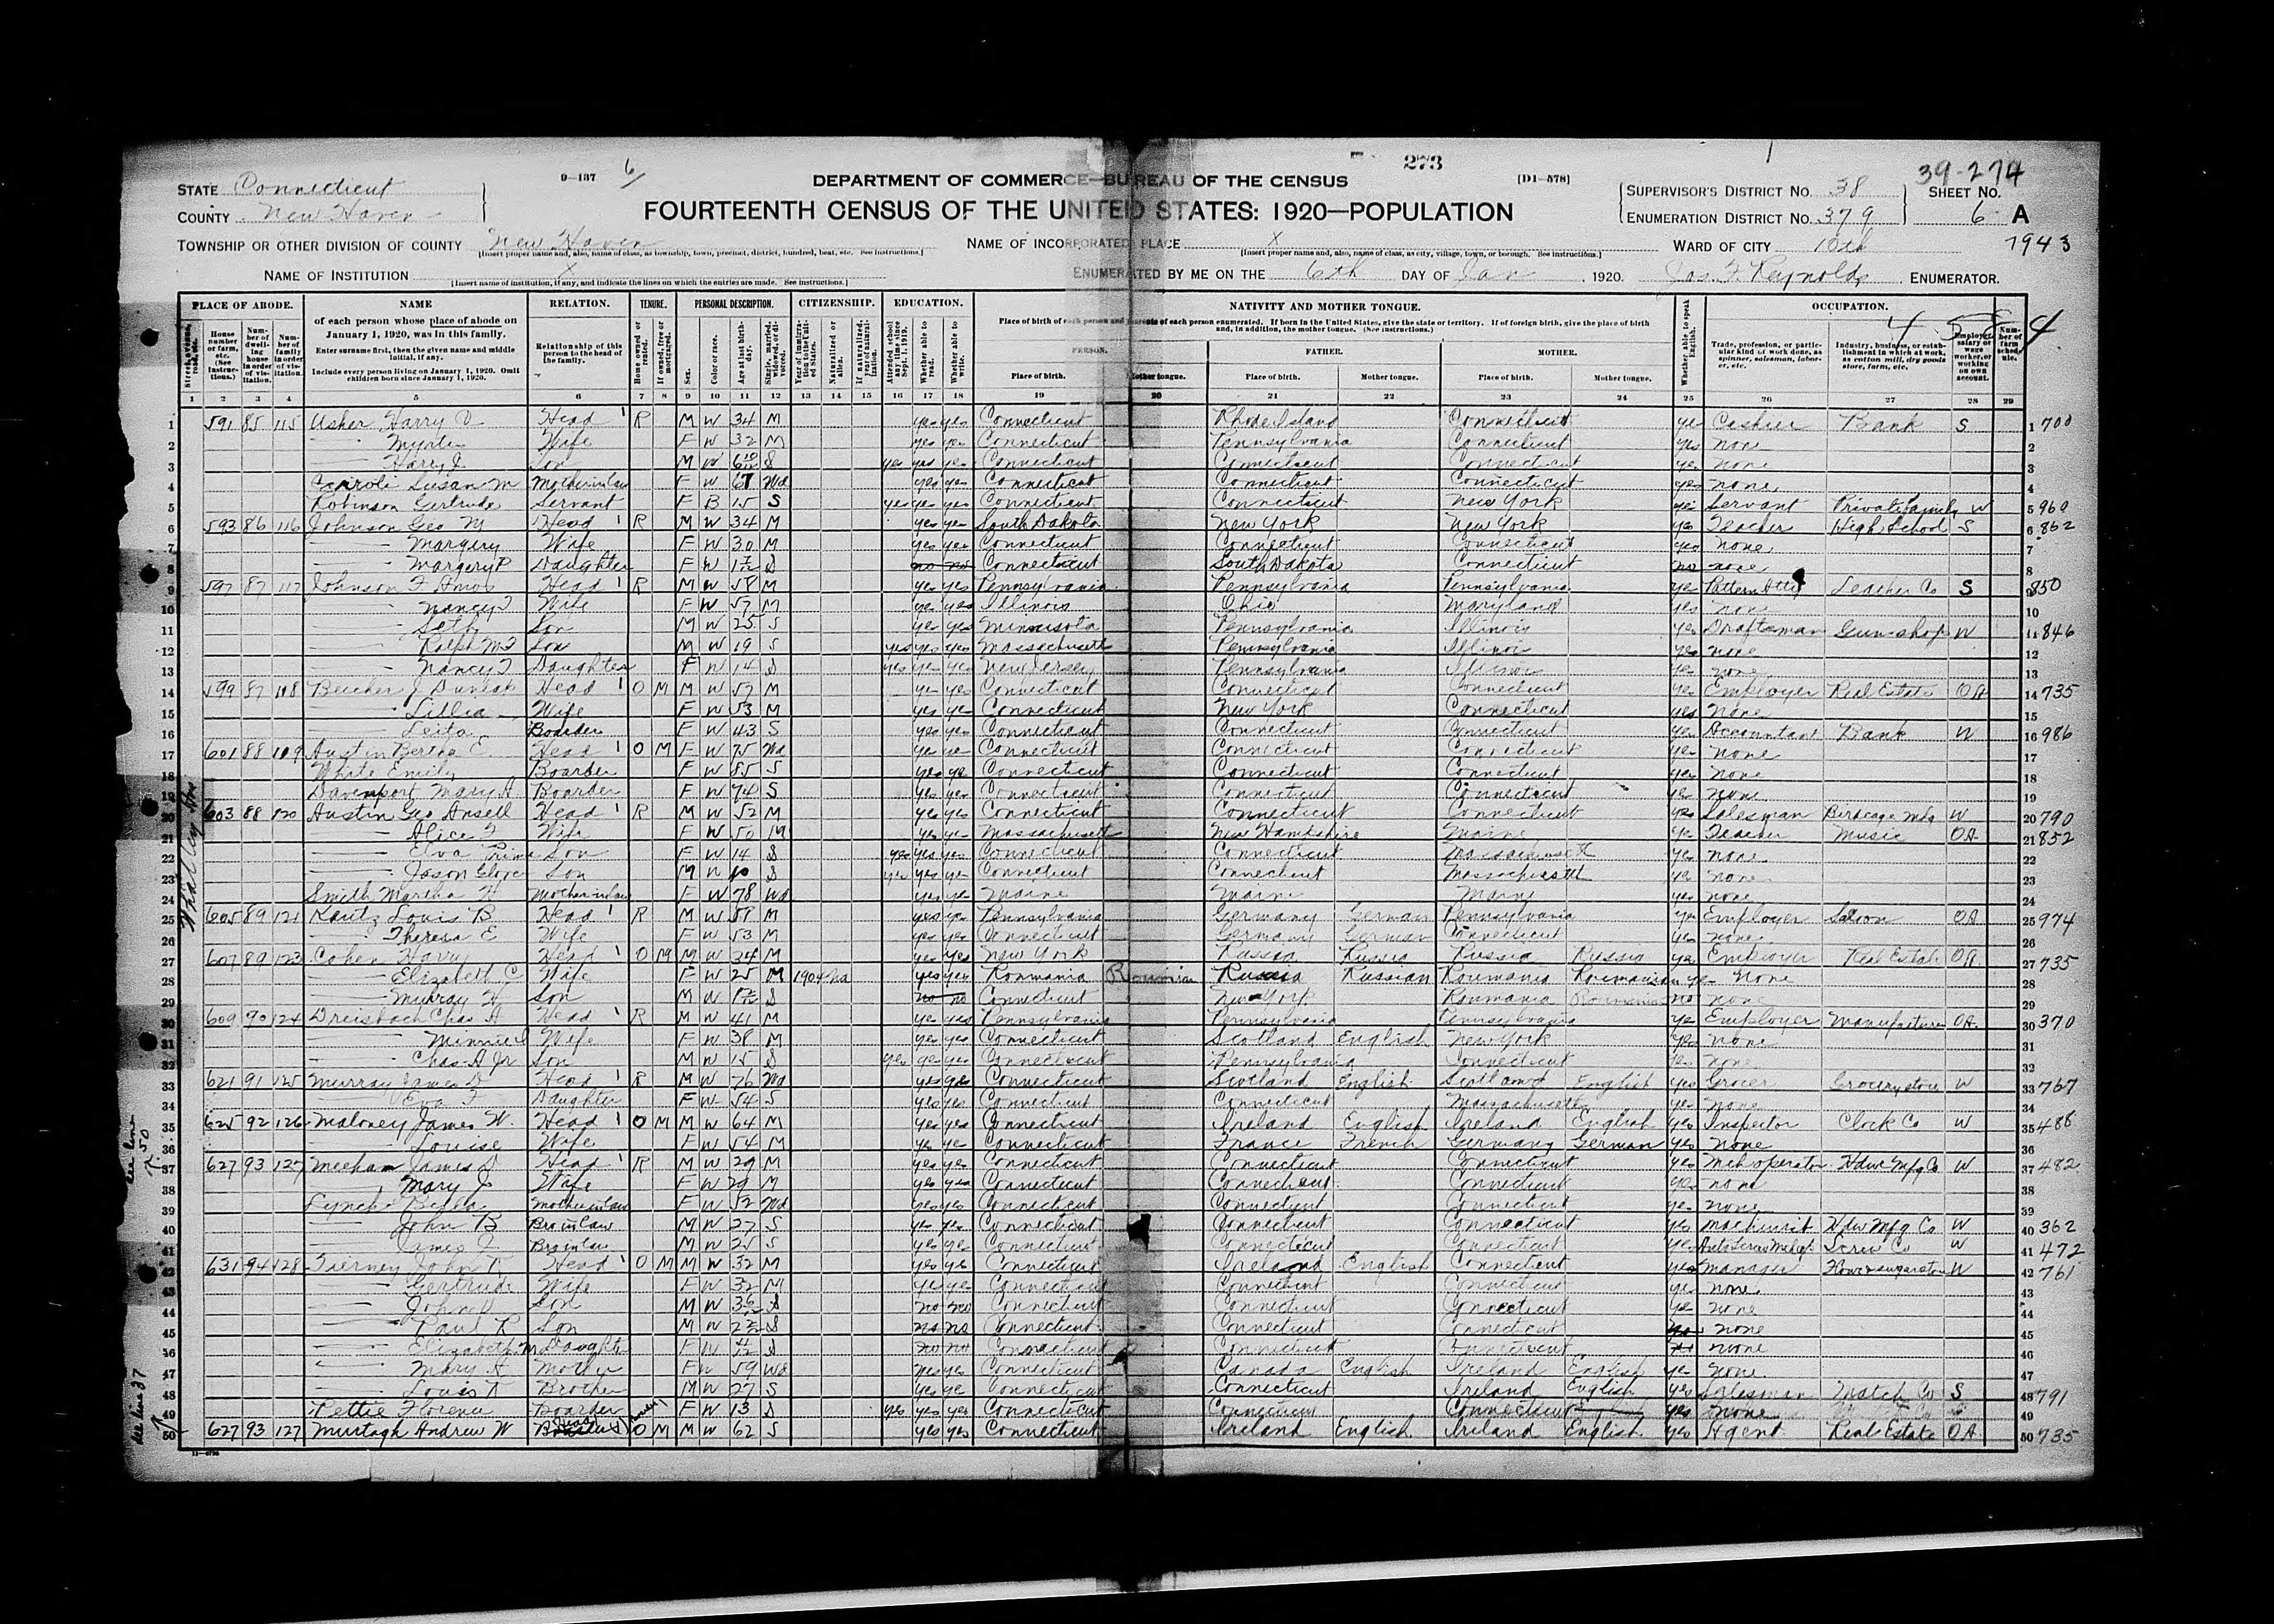 273
39-274
STATE Connecticut 9—137 6/ DEPARTMENT OF COMMERCE—BUREAU OF THE CENSUS [D1—578] SUPERVISOR'S DISTRICT No. 38 SHEET No.
COUNTY New Haven FOURTEENTH CENSUS OF THE UNITED STATES: 1920—POPULATION ENUMERATION DISTRICT No. 379 6 A
TOWNSHIP OR OTHER DIVISION OF COUNTY New Haven NAME OF INCORPORATED PLACE X WARD OF CITY 10th 7943
[Insert proper name and, also, name of class, as township, town, precinct, district, hundred, beat, etc. See instructions.] [Insert proper name and, also, name of class, as city, village, town, or borough. See instructions.]
NAME OF INSTITUTION X ENUMERATED BY ME ON THE 6th DAY OF Jan, 1920. Jos. F. Reynolds ENUMERATOR.
[Insert name of institution, if any, and indicate the lines on which the entries are made. See instructions.]
PLACE OF ABODE. NAME RELATION. TENURE. PERSONAL DESCRIPTION. CITIZENSHIP. EDUCATION. NATIVITY AND MOTHER TONGUE. OCCUPATION.
of each person whose place of abode on January 1, 1920, was in this family.
Enter surname first, then the given name and middle initial, if any.
Include every person living on January 1, 1920. Omit children born since January 1, 1920.
Relationship of this person to the head of the family.
PERSON. FATHER. MOTHER.
Place of birth. Mother tongue. Place of birth. Mother tongue. Place of birth. Mother tongue.
1 2 3 4 5 6 7 8 9 10 11 12 13 14 15 16 17 18 19 20 21 22 23 24 25 26 27 28 29
1 591 85 115 Usher Harry Head 1 R M W 34 M yes yes Connecticut Rhode Island Connecticut yes Cashier Bank S 1 700
2 Myrtie Wife F W 32 M yes yes Connecticut Pennsylvania Connecticut yes none 2
3 Harry J. Son M W S yes yes yes Connecticut Connecticut Connecticut yes none 3
4 Susan M Mother in law F W 67 Wd yes yes Connecticut Connecticut Connecticut yes none 4
5 Robinson Gertrude Servant F B 15 S yes yes yes Connecticut Connecticut New York yes Servant Private Family W 5 960
6 593 86 116 Johnson Geo M Head 1 R M W 34 M yes yes South Dakota New York New York yes Teacher High School S 6 862
7 Margery Wife F W 30 M yes yes Connecticut Connecticut Connecticut yes none 7
8 Margery P Daughter F W S no no Connecticut South Dakota Connecticut no none 8
9 597 87 117 Johnson F Amos Head 1 R M W 58 M yes yes Pennsylvania Pennsylvania Pennsylvania yes S 850
10 Nancy T Wife F W 57 M yes yes Illinois Ohio Maryland yes none 10
11 Seth Son M W 25 S yes yes Minnesota Pennsylvania Illinois yes Draftsman Gunshop W 11 846
12 Ralph Son M W 19 S yes yes yes Massachusetts Pennsylvania Illinois yes none 12
13 Nancy T Daughter F W 14 S yes yes yes New Jersey Pennsylvania Illinois yes none 13
14 599 87 118 Beecher J Dunlap Head 1 O M M W 57 M yes yes Connecticut Connecticut Connecticut yes Employer Real Estate OA 14 735
15 Lillia Wife F W 53 M yes yes Connecticut New York Connecticut yes None 15
16 Leita Boarder F W 43 S yes yes Connecticut Connecticut Connecticut yes Accountant Bank W 16 986
17 601 88 119 Austin Bertha E. Head 1 O M F W 75 Wd yes yes Connecticut Connecticut Connecticut yes none 17
18 White Emily Boarder F W 85 S yes yes Connecticut Connecticut Connecticut yes none 18
19 Davenport Mary A. Boarder F W 74 S yes yes Connecticut Connecticut Connecticut yes none 19
20 603 88 120 Austin Geo Ansell Head 1 R M W 52 M yes yes Connecticut Connecticut Connecticut yes Salesman Birdcage Mfg W 20 790
21 Alice Wife F W 50 M yes yes Massachusetts New Hampshire Maine yes Teacher Music OA 21 852
22 Elva Son F W 14 S yes yes yes Connecticut Connecticut Massachusetts yes none 22
23 Jason Glover Son M W 10 S yes yes yes Connecticut Connecticut Massachusetts yes none 23
24 Smith Martha H Mother in law F W 78 Wd yes yes Maine Maine Maine yes none 24
25 605 89 121 Kautz Louis B Head 1 R M W 58 M yes yes Pennsylvania Germany German Pennsylvania yes Employer OA 25 974
26 Theresa E Wife F W 53 M yes yes Connecticut Germany German Connecticut yes none 26
27 607 89 123 Cohen Harry Head 1 O M M W 34 M yes yes New York Russia Russia Russia Russia yes Employer Real Estate OA 27 735
28 Elizabeth C Wife F W 25 M 1904 Na yes yes Roumania Russia Russian Roumania Roumanian yes None 28
29 Murray H Son M W S no no Connecticut New York Roumania Roumania no none 29
30 609 90 124 Dreisbach Chas A Head 1 R M W 41 M yes yes Pennsylvania Pennsylvania Pennsylvania yes Employer Manufacturer OA 30 370
31 Minnie Wife F W 38 M yes yes Connecticut Scotland English New York yes none 31
32 Chas A Jr Son M W 15 S yes yes yes Connecticut Pennsylvania Connecticut yes none 32
33 621 91 125 Murray James D Head 1 R M W 76 Wd yes yes Connecticut Scotland English Scotland English yes Grocer Grocery store W 33 767
34 Eva F Daughter F W 54 S yes yes Connecticut Connecticut Massachusetts yes none 34
35 625 92 126 Maloney James W. Head 1 O M M W 64 M yes yes Connecticut Ireland English Ireland English yes Inspector Clock Co W 35 488
36 Louise Wife F W 54 M yes yes Connecticut France French Germany German yes None 36
37 627 93 127 Meehan James D Head 1 R M W 29 M yes yes Connecticut Connecticut Connecticut yes Mch operator Hdwe Mfg Co W 37 482
38 Mary J Wife F W 29 M yes yes Connecticut Connecticut Connecticut yes none 38
39 Lynch Bella Mother in law F W 52 Wd yes yes Connecticut Connecticut Connecticut yes none 39
40 John B Bro in law M W 27 S yes yes Connecticut Connecticut Connecticut yes Machinist Hdw Mfg Co W 40 362
41 James J Bro in law M W 25 S yes yes Connecticut Connecticut Connecticut yes Screw Co W 41 472
42 631 94 128 Tierney John Head 1 O M M W 32 M yes yes Connecticut Ireland English Connecticut yes Manager W 42 761
43 Gertrude Wife F W 32 M yes yes Connecticut Connecticut Connecticut yes none 43
44 John Son M W S no no Connecticut Connecticut Connecticut yes none 44
45 Paul R Son M W S no no Connecticut Connecticut Connecticut none 45
46 Elizabeth M Daughter F W S no no Connecticut Connecticut Connecticut none 46
47 Mary A Mother F W 59 Wd yes yes Connecticut Canada English Ireland English yes None 47
48 Louis Brother M W 27 S yes yes Connecticut Connecticut Ireland English yes Salesman Match Co S 48 791
49 Pettie Florence Boarder F W 13 S yes yes yes Connecticut Connecticut Connecticut yes None 49
50 627 93 127 Murtagh Andrew W Head O M M W 62 S yes yes Connecticut Ireland English Ireland English yes Agent Real Estate OA 50 735
Whalley Ave
see line 50
see line 37